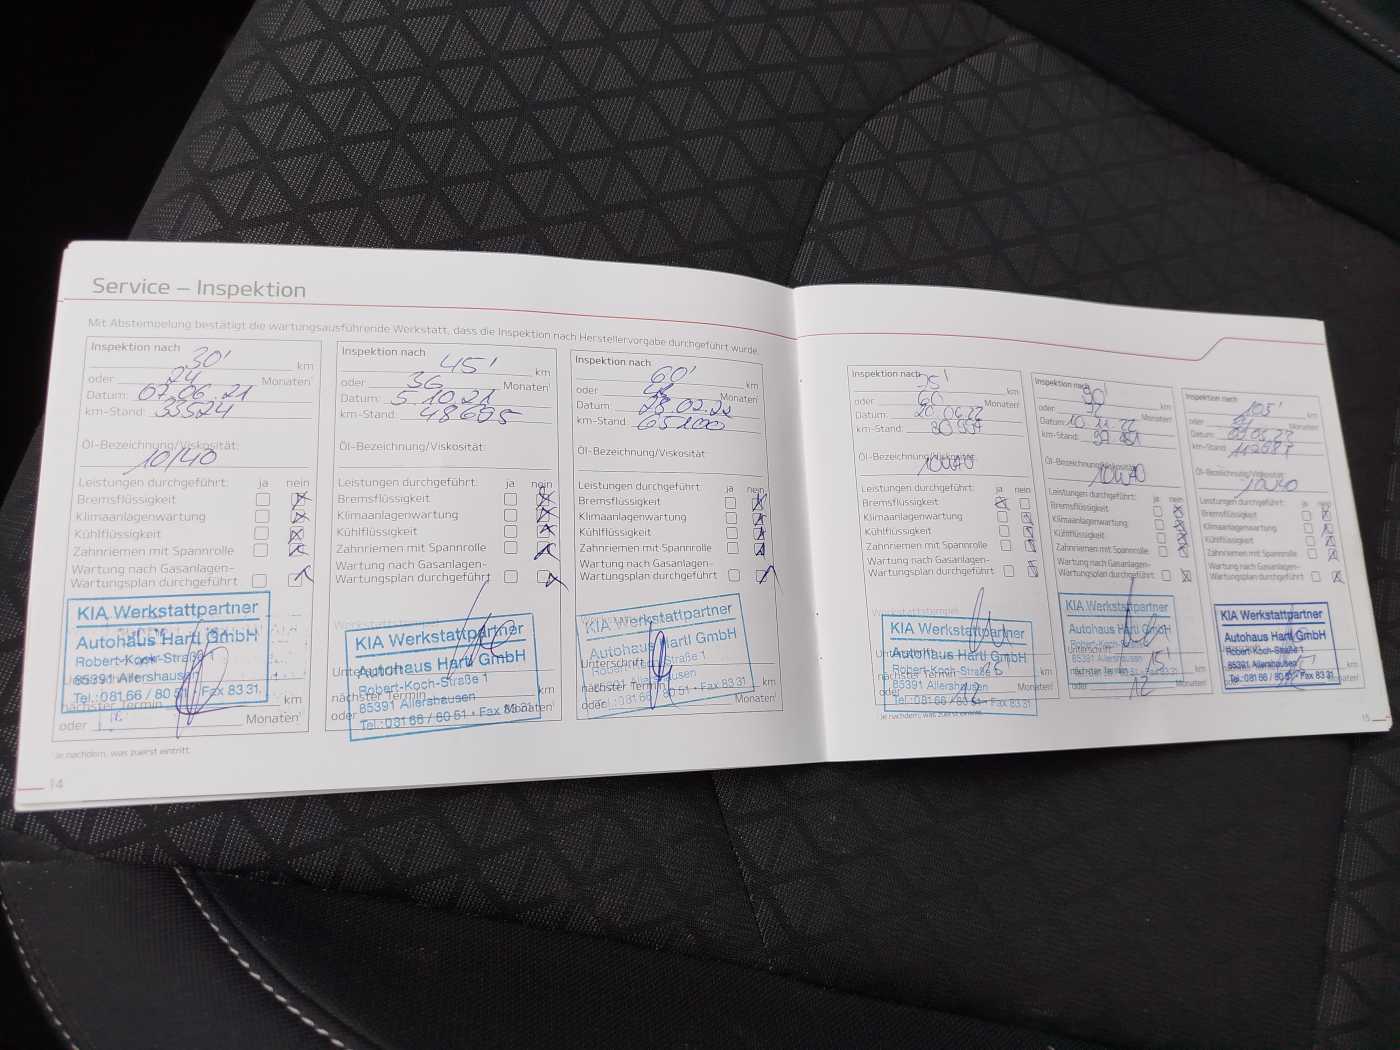 Service – Inspektion
Mit Abstempelung bestätigt die wartungsausführende Werkstatt, dass die Inspektion nach Herstellervorgabe durchgeführt wurde.
Inspektion nach 30' km
oder 24 Monaten¹
Datum: 07.06.21
km-Stand: 33524
Öl-Bezeichnung/Viskosität:
10/40
Leistungen durchgeführt: ja nein
Bremsflüssigkeit
Klimaanlagenwartung
Kühlflüssigkeit
Zahnriemen mit Spannrolle
Wartung nach Gasanlagen-
Wartungsplan durchgeführt
KIA Werkstattpartner
Autohaus Hartl GmbH
Robert-Koch-Straße 1
85391 Allershausen
Tel.: 081 66 / 60 51 • Fax 83 31
nächster Termin km
oder Monaten¹
Inspektion nach 45' km
oder 36 Monaten¹
Datum: 5.10.21
km-Stand: 48605
Öl-Bezeichnung/Viskosität:
Leistungen durchgeführt: ja nein
Bremsflüssigkeit
Klimaanlagenwartung
Kühlflüssigkeit
Zahnriemen mit Spannrolle
Wartung nach Gasanlagen-
Wartungsplan durchgeführt
Werkstattstempel
KIA Werkstattpartner
Autohaus Hartl GmbH
Robert-Koch-Straße 1
85391 Allershausen
Tel.: 081 66 / 60 51 • Fax 83 31
Unterschrift
nächster Termin km
oder Monaten¹
Inspektion nach 60' km
oder 48 Monaten¹
Datum: 28.02.22
km-Stand: 65100
Öl-Bezeichnung/Viskosität:
Leistungen durchgeführt: ja nein
Bremsflüssigkeit
Klimaanlagenwartung
Kühlflüssigkeit
Zahnriemen mit Spannrolle
Wartung nach Gasanlagen-
Wartungsplan durchgeführt
KIA Werkstattpartner
Autohaus Hartl GmbH
Robert-Koch-Straße 1
85391 Allershausen
Tel.: 081 66 / 60 51 • Fax 83 31
Unterschrift
nächster Termin km
oder Monaten¹
¹Je nachdem, was zuerst eintritt.
14
Inspektion nach 75' km
oder 60 Monaten¹
Datum: 20.06.22
km-Stand:
Öl-Bezeichnung/Viskosität:
10W40
Leistungen durchgeführt: ja nein
Bremsflüssigkeit
Klimaanlagenwartung
Kühlflüssigkeit
Zahnriemen mit Spannrolle
Wartung nach Gasanlagen-
Wartungsplan durchgeführt
Werkstattstempel
KIA Werkstattpartner
Autohaus Hartl GmbH
Robert-Koch-Straße
85391 Allershausen
Tel.: 081 66 / 60 51 • Fax 83 31
Unterschrift
nächster Termin
oder
Inspektion nach 90' km
oder 72 Monaten¹
Datum: 10.11.22
km-Stand:
Öl-Bezeichnung/Viskosität:
10W40
Leistungen durchgeführt: ja nein
Bremsflüssigkeit
Klimaanlagenwartung
Kühlflüssigkeit
Zahnriemen mit Spannrolle
Wartung nach Gasanlagen-
Wartungsplan durchgeführt
KIA Werkstattpartner
Autohaus Hartl GmbH
85391 Allershausen
Unterschrift
nächster Termin 15' km
oder 12 Monaten¹
Inspektion nach 105' km
oder Monaten¹
Datum:
km-Stand:
Öl-Bezeichnung/Viskosität:
10W40
Leistungen durchgeführt: ja nein
Bremsflüssigkeit
Klimaanlagenwartung
Kühlflüssigkeit
Zahnriemen mit Spannrolle
Wartung nach Gasanlagen-
Wartungsplan durchgeführt
KIA Werkstattpartner
Autohaus Hartl GmbH
Robert-Koch-Straße 1
85391 Allershausen
Tel.: 081 66 / 60 51 • Fax 83 31
km
Monaten¹
¹Je nachdem, was zuerst eintritt.
15